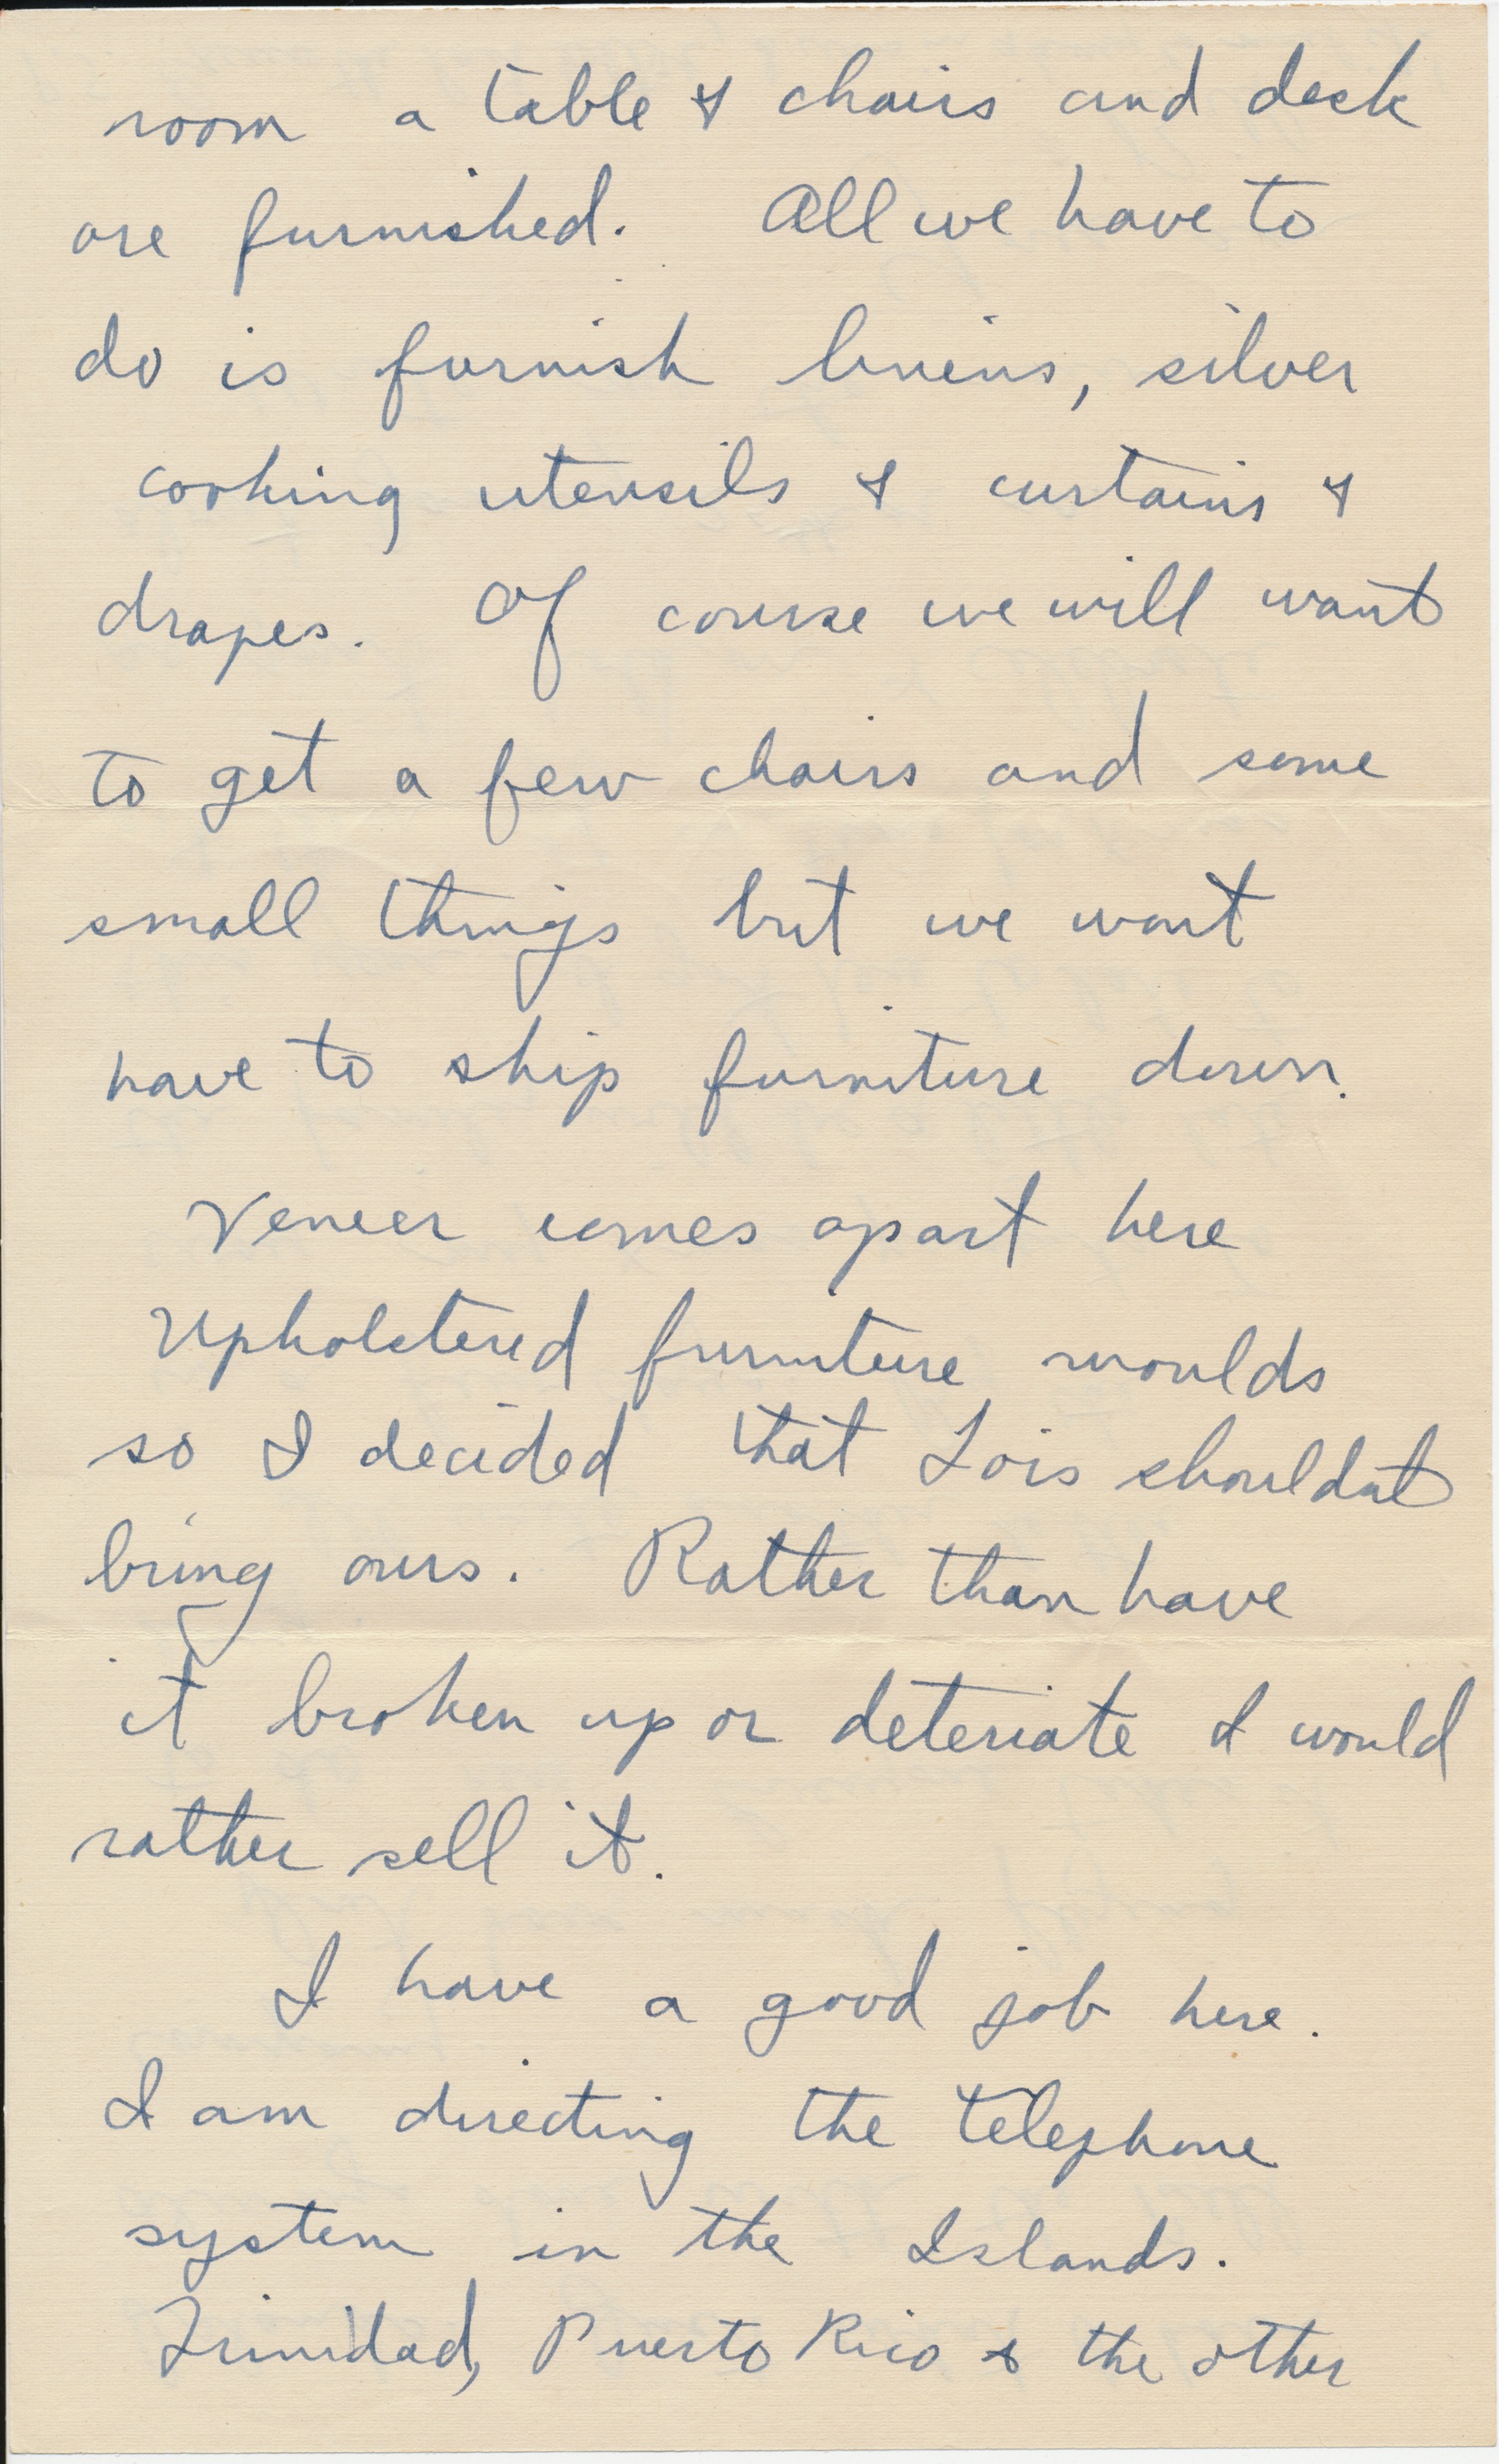 room a table & chairs and desk
are furnished. All we have to
do is furnish linens, silver
cooking utensils & curtains &
drapes. Of course we will want
to get a few chairs and some
small things but we wont
have to ship furniture down.
Veneer comes apart here
Upholstered furniture moulds
so I decided that Lois shouldnt
bring ours. Rather than have
it broken up or deteriate I would
rather sell it.
I have a good job here.
I am directing the telephone
system in the Islands.
Trinidad, Puerto Rico & the other